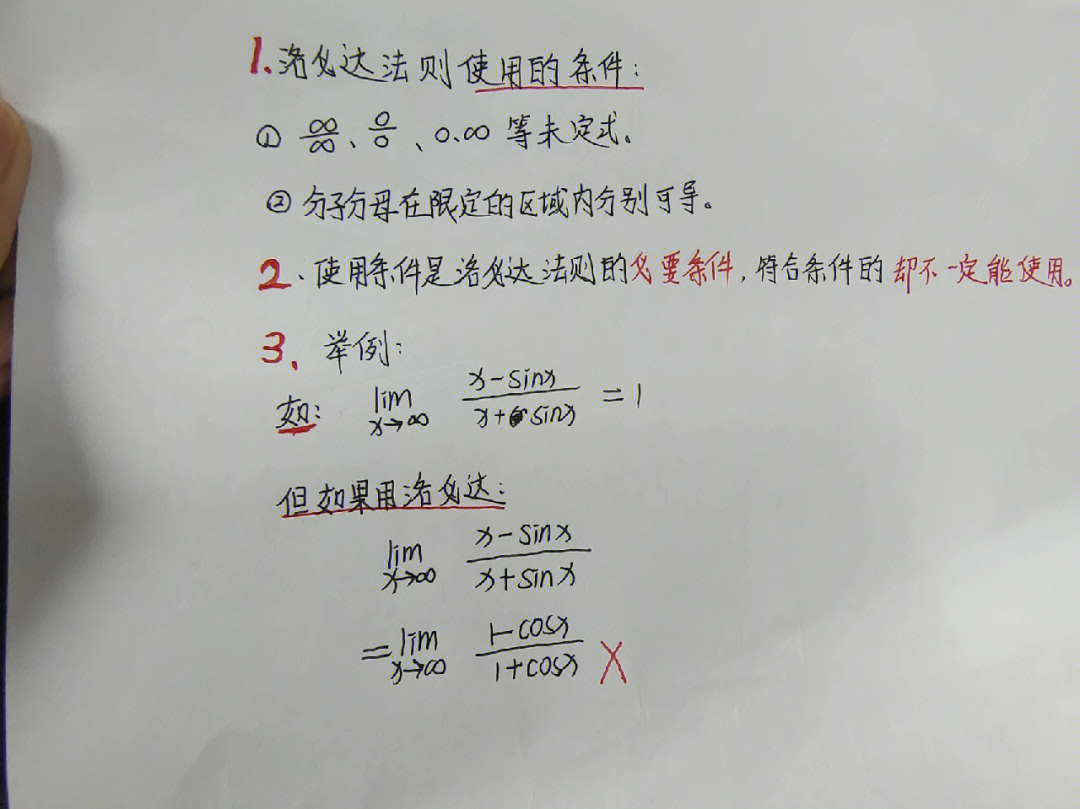 1.洛必达法则使用的条件:
① ∞/∞、0/0、0.∞ 等未定式。
② 分子分母在限定的区域内分别可导。
2、使用条件是洛必达法则的必要条件,符合条件的却不一定能使用。
3、举例:
如: lim x→∞ (x-sinx)/(x+sinx) =1
但如果用洛必达:
lim x→∞ (x-sinx)/(x+sinx)
=lim x→∞ (1-cosx)/(1+cosx) X